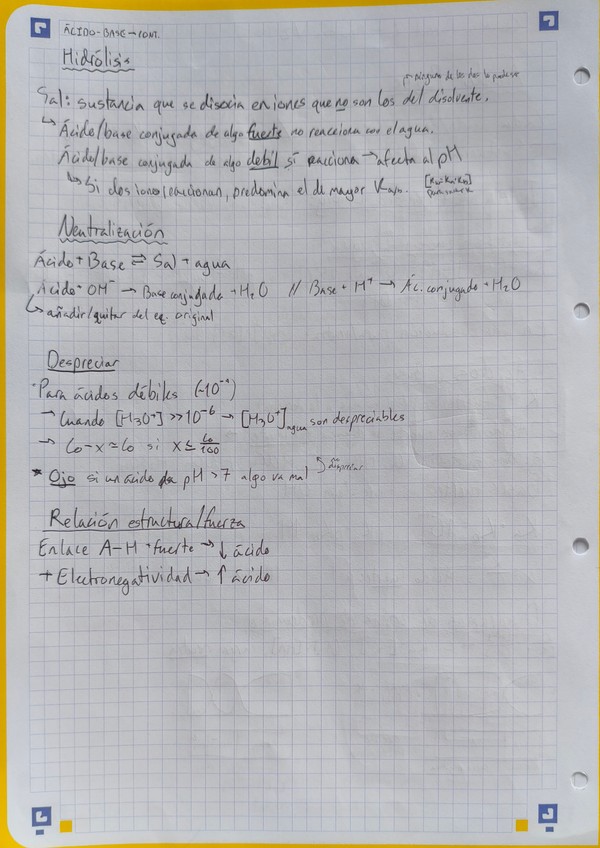 ÁCIDO-BASE → CONT.
Hidrólisis
Sal: sustancia que se disocia en iones que no son los del disolvente.
↳ Ácido/base conjugada de algo fuerte no reacciona con el agua.
Ácido/base conjugada de algo debil sí reacciona → afecta al pH
↳ Si dos iones reaccionan, predomina el de mayor
Neutralización
Ácido + Base ⇌ Sal + agua
Ácido + OH⁻ → Base conjugada + H₂O // Base + H⁺ → Ác. conjugado + H₂O
↳ añadir/quitar del eq. original
Despreciar
· Para ácidos débiles (~10⁻⁴)
→ Cuando [H₃O⁺] >> 10⁻⁶ → [H₃O⁺]agua son despreciables
→ C₀-x ≃ C₀ si x ≤ C₀/100
* Ojo si un ácido da pH > 7 algo va mal
Relación estructura/fuerza
Enlace A-H + fuerte → ↓ ácido
+ Electronegatividad → ↑ ácido